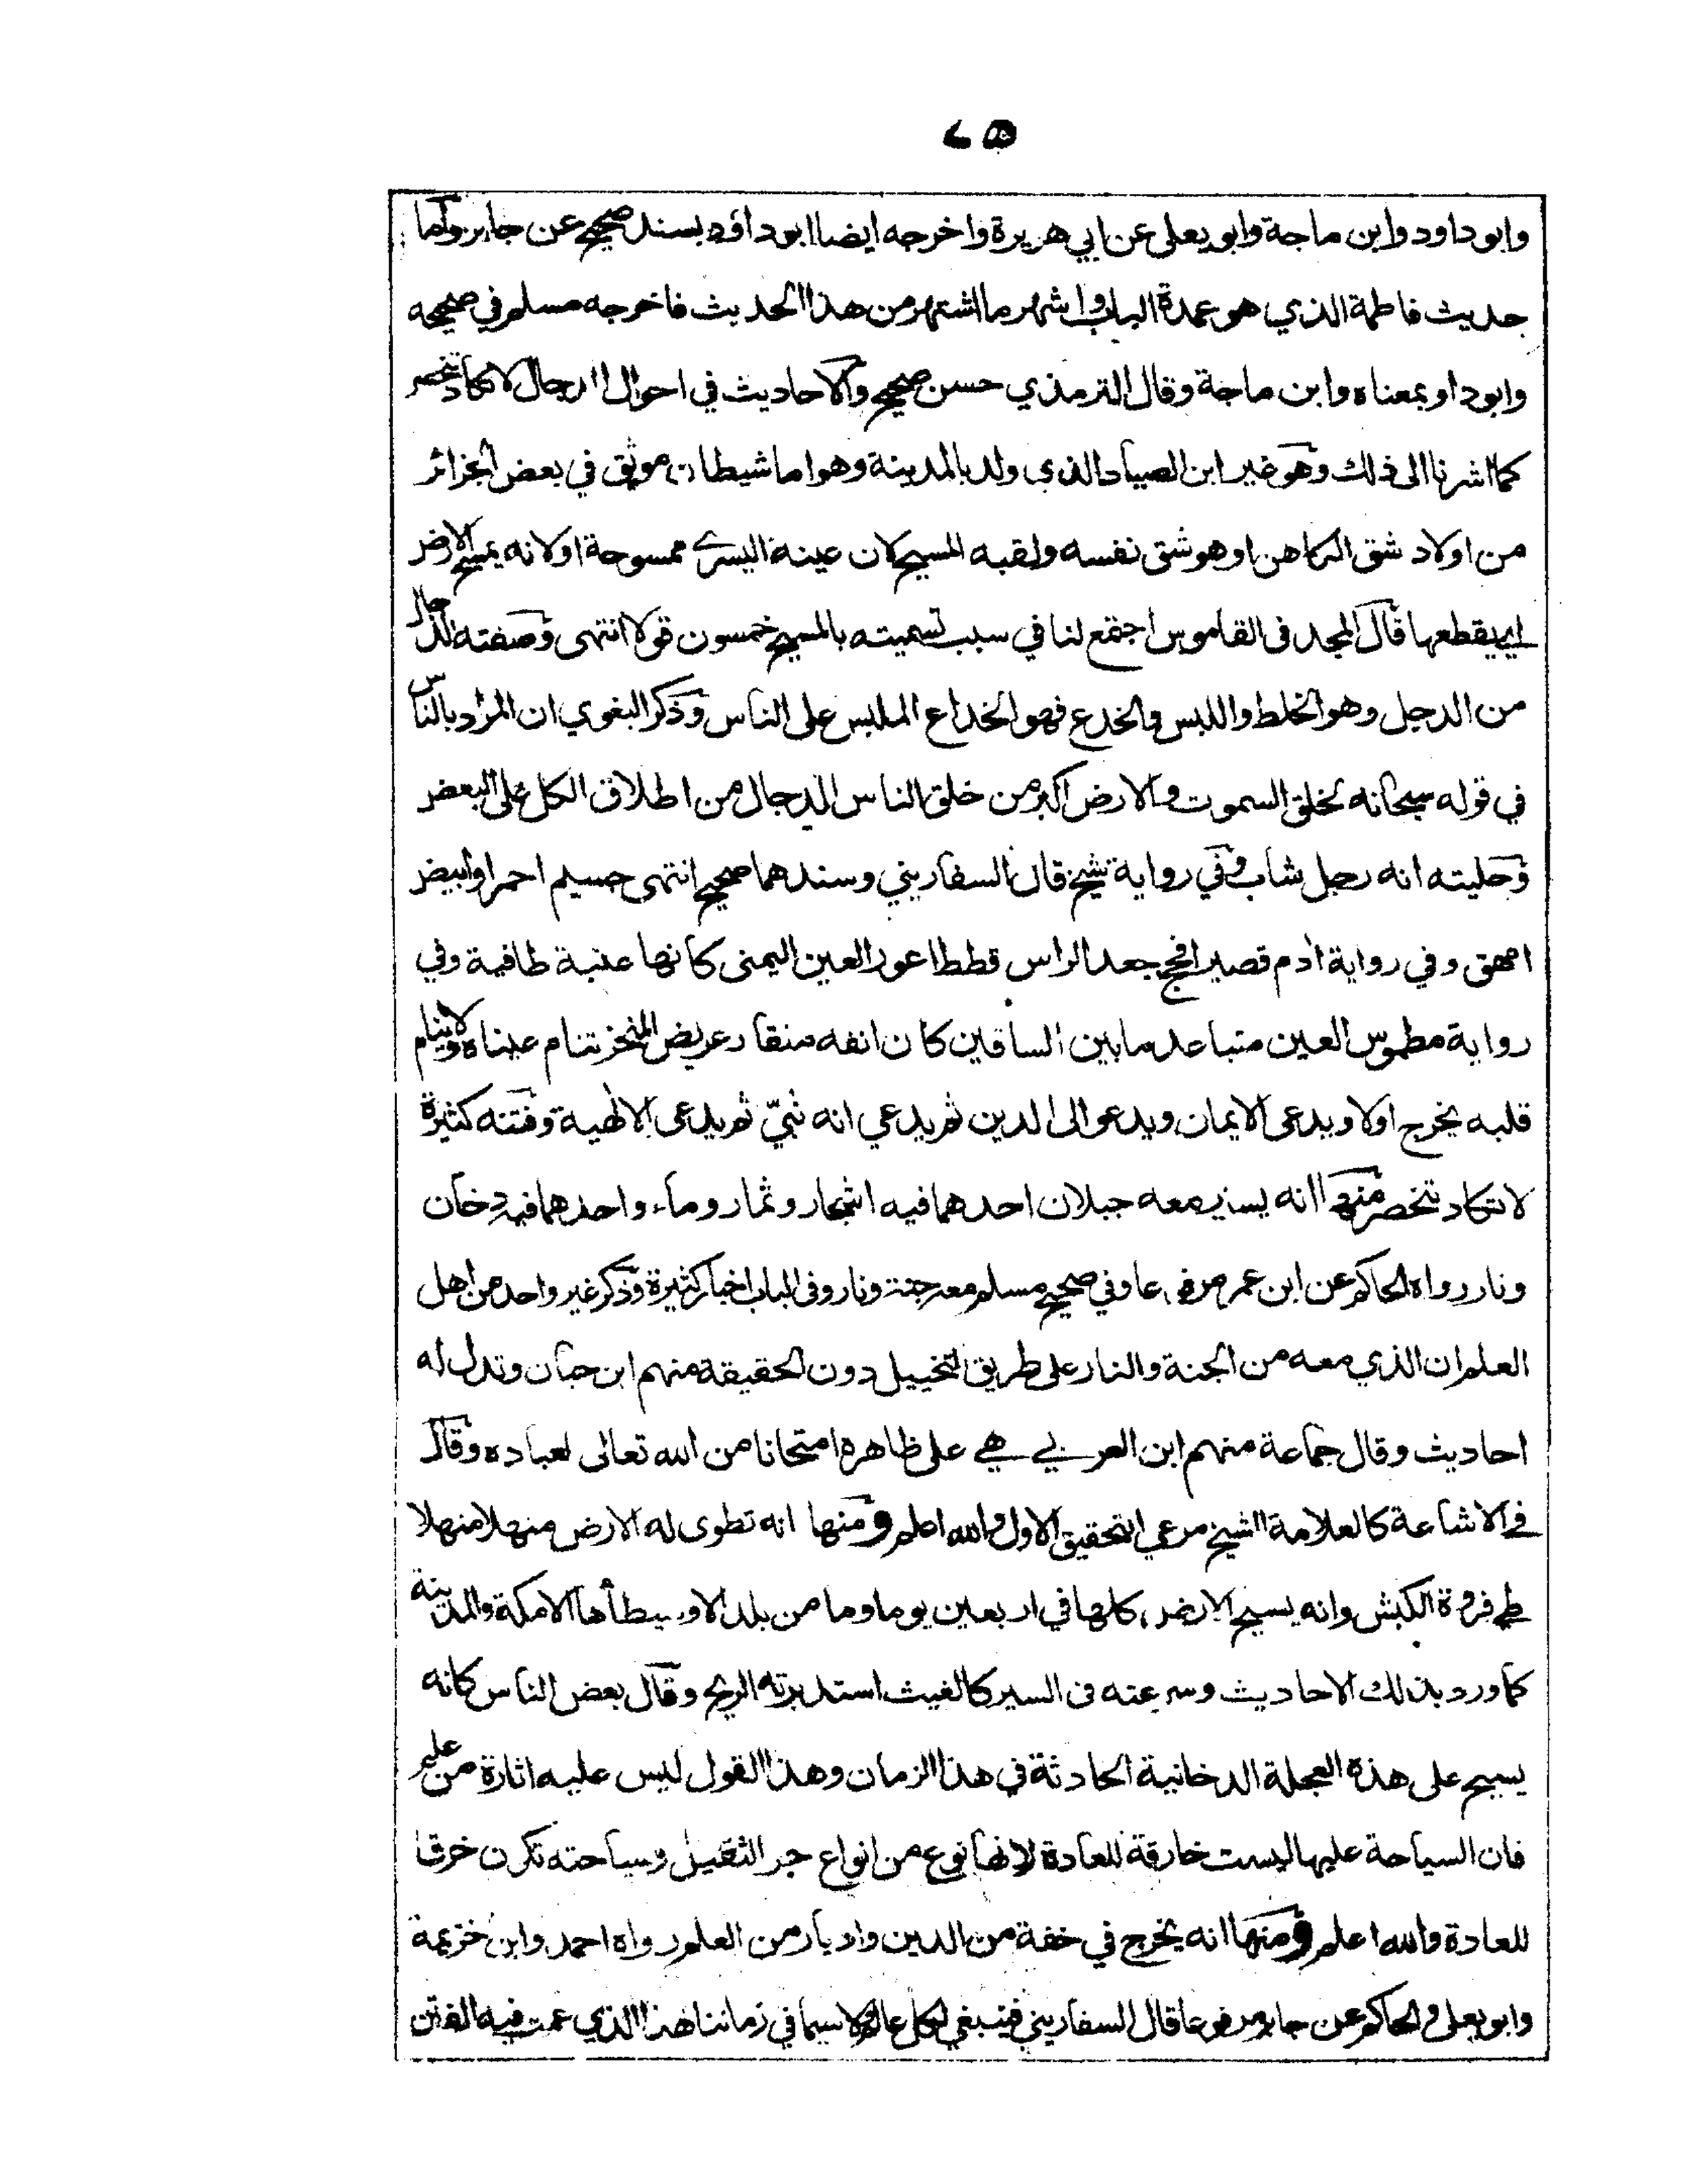 ٧٥
وابوداود وابن ماجة وابو يعلى عن ابي هريرة واخرجه ايضا ابوداؤد بسند صحيح عن جابر واما
حديث فاطمة الذي هو عمدة الباب واشهر ما اشتهر من هذا الحديث فاخرجه مسلم في صحيحه
وابوداو بمعناه وابن ماجة وقال الترمذي حسن صحيح والاحاديث في احوال الرجال لا تكاد تنحصر
كما اشرنا الى ذلك وهو غير ابن الصياد الذي ولد بالمدينة وهو اما شيطان موثق في بعض الجزائر
من اولاد شق الكاهن او هو شق نفسه ولقبه المسيح لان عينه اليسرے ممسوحة او لانه يمسح الارض
اي يقطعها قال المجد فى القاموس اجتمع لنا في سبب تسميته بالمسيح خمسون قولا انتهى وصفته الدجال
من الدجل وهو الخلط واللبس والخدع فهو الخداع الملبس على الناس وذكر البغوي ان المراد بالناس
في قوله سبحانه لخلق السموت والارض اكبر من خلق الناس الدجال من اطلاق الكل على البعض
وحليته انه رجل شاب وفي رواية شيخ قال السفاريني وسندهما صحيح انتهى جسيم احمر او ابيض
امهق وفي رواية ادم قصير افحج جعد الراس قطط اعور العين اليمنى كانها عنبة طافية وفي
رواية مطموس العين متباعد مابين الساقين كان انفه منقار عريض المنخر تنام عيناه ولا ينام
قلبه يخرج اولا ويدعى الايمان ويدعو الى الدين ثم يدعي انه نبيّ ثم يدعى الالهية وفتنه كثيرة
لا تكاد تنحصر منها انه يسير معه جبلان احدهما فيه اشجار وثمار وماء واحدهما فيه دخان
ونار رواه الحاكم عن ابن عمر مرفوعا وفي صحيح مسلم معه جنة ونار وفى الباب اخبار كثيرة وذكر غير واحد من اهل
العلم ان الذي معه من الجنة والنار على طريق التخييل دون الحقيقة منهم ابن حبان وتدل له
احاديث وقال جماعة منهم ابن العربي هي على ظاهره امتحانا من الله تعالى لعباده وقال
في الاشاعة كالعلامة الشيخ مرعي التحقيق الاول والله اعلم ومنها انه تطوى له الارض منهلا منهلا
طي فروة الكبش وانه يسيح الارض كلها في اربعين يوما وما من بلد الا وسيطأها الا مكة والمدينة
كما ورد بذلك الاحاديث وسرعته فى السير كالغيث استدبرته الريح وقال بعض الناس كانه
يسيح على هذه العجلة الدخانية الحادثة في هذا الزمان وهذا القول ليس عليه اثارة من علم
فان السياحة عليها ليست خارقة للعادة لانها نوع من انواع جر الثقيل وسياحته تكون خرقا
للعادة والله اعلم ومنها انه يخرج في خفة من الدين وادبار من العلم رواه احمد وابن خزيمة
وابو يعلى والحاكم عن جابر مرفوعا قال السفاريني فينبغي لكل عالم ولاسيما في زماننا هذا الذي عمت فيه الفتن